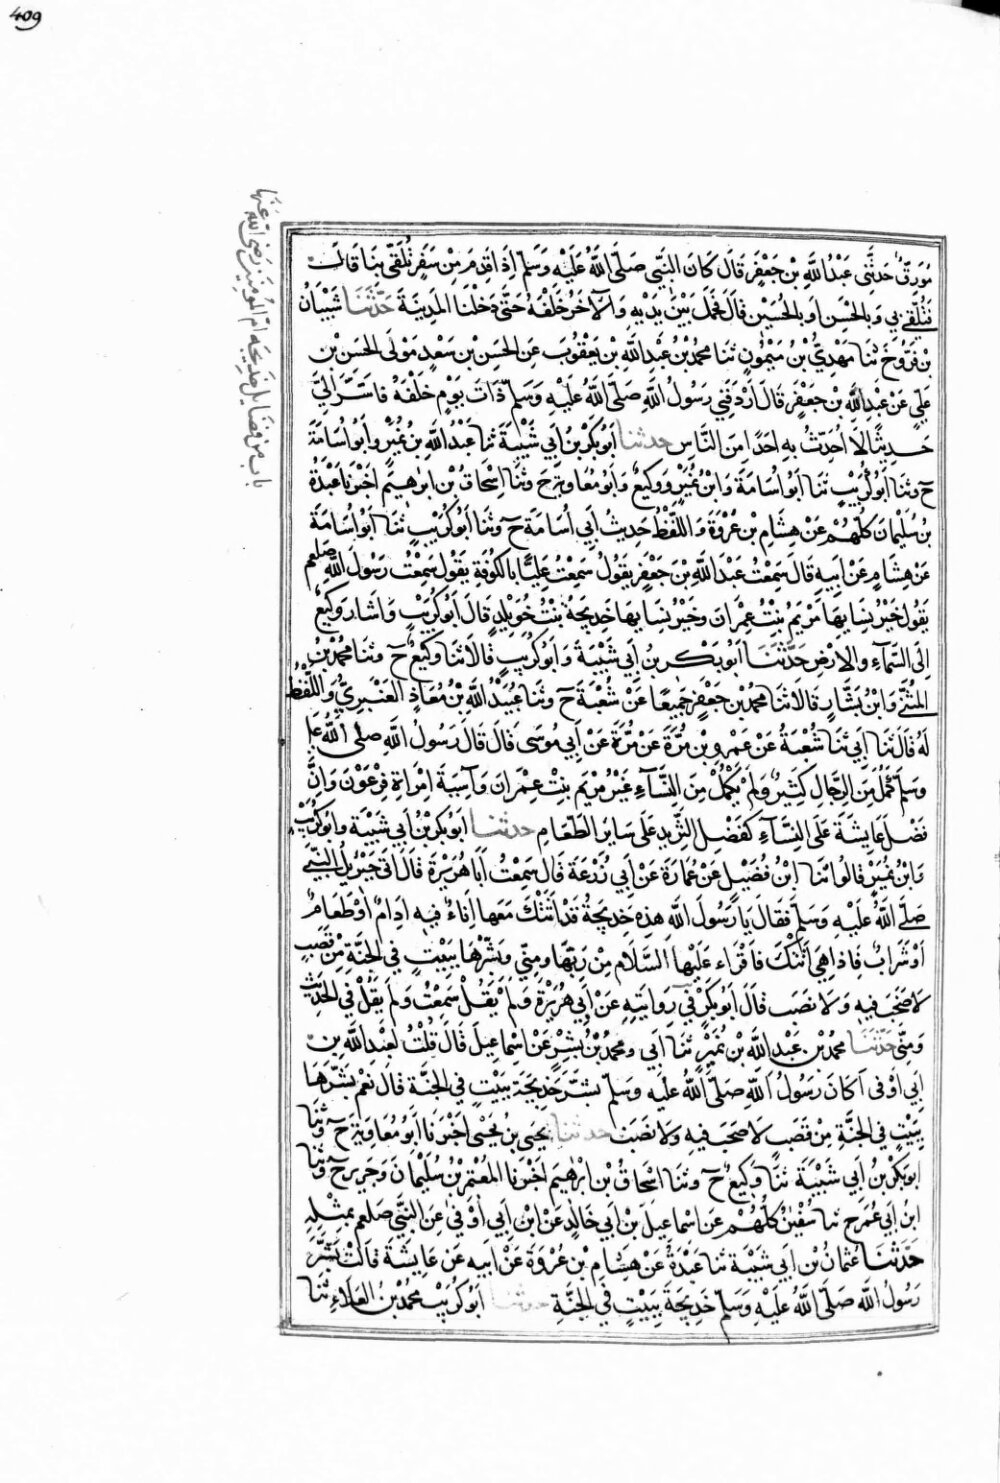 409
باب من فضايل خديجه ام المومنين رضى الله عنها
مُوَرِّقٌ حدثني عبد الله بن جعفر قال كان النبي صلى الله عليه وسلم اذا قدم من سفر تلقي بنا قال
فتلقي بي وبالحسن او بالحسين قال فحمل بين يديه والآخر خلفه حتى دخلنا المدينة حدثنا شيبان
بن فروخ ثنا مهدي بن ميمون ثنا محمد بن عبد الله بن يعقوب عن الحسن بن سعد مولى الحسن بن
علي عن عبد الله بن جعفر قال اردفني رسول الله صلى الله عليه وسلم ذات يوم خلفه فاسر الي
حديثا لا احدث به احدا من الناس حدثنا ابو بكر بن ابي شيبة ثنا عبد الله بن نمير وابو اسامة
ح وثنا ابو كريب ثنا ابو اسامة وابن نمير ووكيع وابو معاوية ح وثنا اسحاق بن ابرهيم اخبرنا عبدة
بن سليمان كلهم عن هشام بن عروة واللفظ حديث ابي اسامة ح وثنا ابو كريب ثنا ابو اسامة
عن هشام عن ابيه قال سمعت عبد الله بن جعفر يقول سمعت عليا بالكوفة يقول سمعت رسول الله صلعم
يقول خير نسايها مريم بنت عمران وخير نسايها خديجة بنت خويلد قال ابو كريب واشار وكيع
الى السماء والارض حدثنا ابو بكر بن ابي شيبة وابو كريب قالا ثنا وكيع ح وثنا محمد بن
المثنى وابن بشار قالا ثنا محمد بن جعفر جميعا عن شعبة ح وثنا عبيد الله بن معاذ العنبري واللفظ
له قال ثنا ابي ثنا شعبة عن عمرو بن مرة عن مرة عن ابي موسى قال قال رسول الله صلى الله عليه
وسلم كمل من الرجال كثير ولم يكمل من النساء غير مريم بنت عمران وآسية امراة فرعون وان
فضل عايشة على النساء كفضل الثريد على ساير الطعام حدثنا ابو بكر بن ابي شيبة وابو كريب
وابن نمير قالوا ثنا ابن فضيل عن عمارة عن ابي زرعة قال سمعت ابا هريرة قال اتى جبريل النبي
صلى الله عليه وسلم فقال يا رسول الله هذه خديجة قد اتتك معها اناء فيه ادام او طعام
او شراب فاذا هي اتتك فاقراء عليها السلام من ربها ومني وبشرها ببيت في الجنة من قصب
لا صخب فيه ولا نصب قال ابو بكر في روايته عن ابي هريرة ولم يقل سمعت ولم يقل في الحديث
ومني حدثنا محمد بن عبد الله بن نمير ثنا ابي ومحمد بن بشر عن اسماعيل قال قلت لعبد الله بن
ابي اوفى اكان رسول الله صلى الله عليه وسلم بشر خديجة ببيت في الجنة قال نعم بشرها
ببيت في الجنة من قصب لا صخب فيه ولا نصب حدثنا يحيى بن يحيى اخبرنا ابو معاوية ح وثنا
ابو بكر بن ابي شيبة ثنا وكيع ح وثنا اسحاق بن ابرهيم اخبرنا المعتمر بن سليمان وجرير ح وثنا
ابن ابي عمر ح ثنا سفين كلهم عن اسماعيل بن ابي خالد عن ابن ابي اوفى عن النبي صلعم بمثله
حدثنا عثمان بن ابي شيبة ثنا عبدة عن هشام بن عروة عن ابيه عن عايشة قالت بشر
رسول الله صلى الله عليه وسلم خديجة ببيت في الجنة حدثنا ابو كريب محمد بن العلاء ثنا